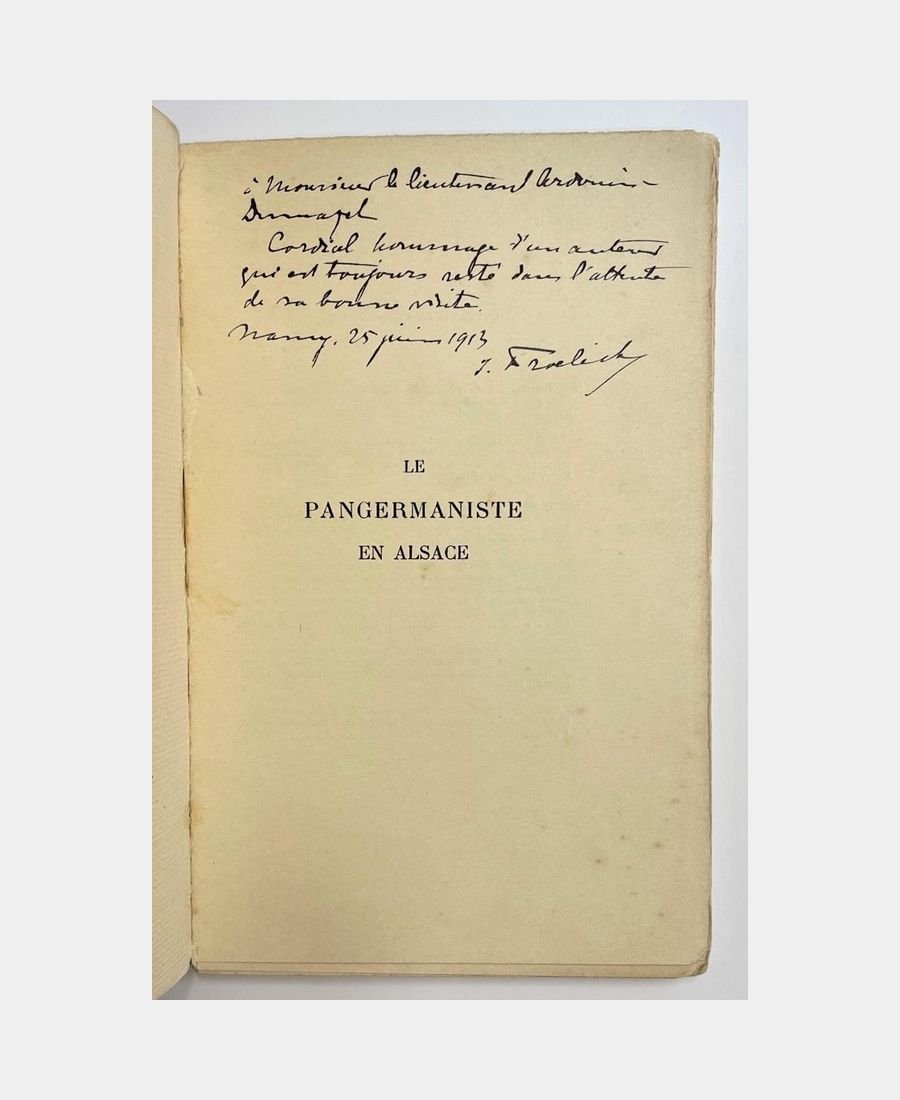 à Monsieur le lieutenant Ardouin-
Dumazet
Cordial hommage d'un auteur
qui est toujours resté dans l'attente
de sa bonne visite.
Nancy, 25 juin 1913
J. Froelich
LE
PANGERMANISTE
EN ALSACE